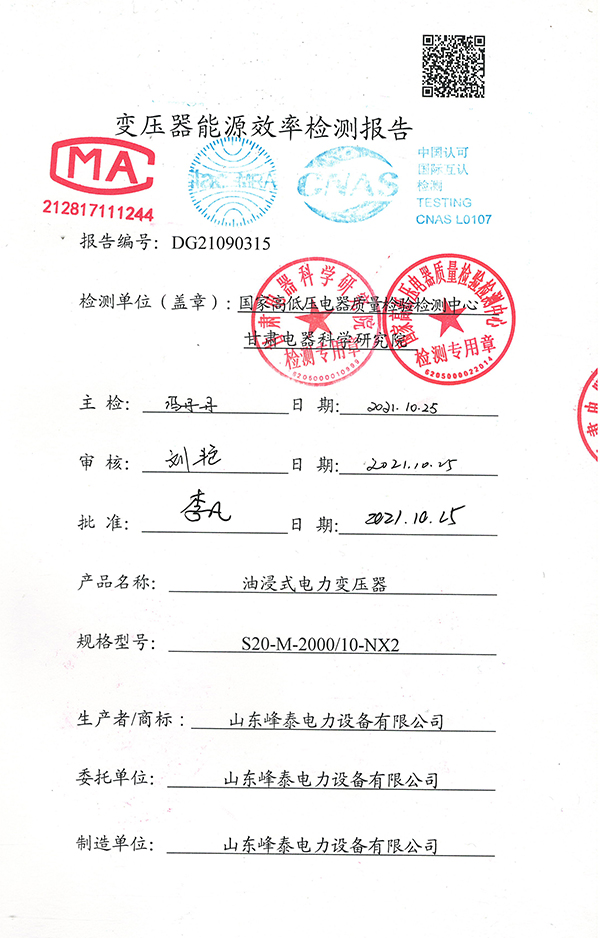 变压器能源效率检测报告
MA
212817111244
CNAS
中国认可
国际互认
检测
TESTING
CNAS L0107
报告编号：DG21090315
检测单位（盖章）：国家高低压电器质量检验检测中心
甘肃电器科学研究院
甘肃电器科学研究院
检测专用章
6205000010999
国家高低压电器质量检验检测中心
检测专用章
6205000022014
主 检： 冯子子 日 期： 2021.10.25
审 核： 刘艳 日 期： 2021.10.25
批 准： 李凡 日 期： 2021.10.25
产品名称： 油浸式电力变压器
规格型号： S20-M-2000/10-NX2
生产者/商标： 山东峰泰电力设备有限公司
委托单位： 山东峰泰电力设备有限公司
制造单位： 山东峰泰电力设备有限公司